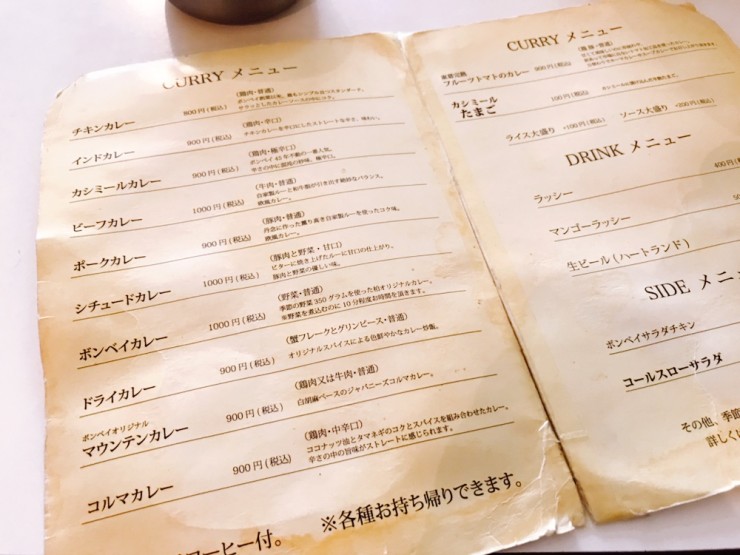 CURRY メニュー
チキンカレー 800円(税込) (鶏肉・普通)
インドカレー 900円(税込) (鶏肉・辛口)
チキンカレーを辛口にしたストレートな辛さ、味わい。
カシミールカレー 900円(税込) (鶏肉・極辛口)
ボンベイ43年不動の一番人気。
辛さの中に混沌の妙味、極辛口。
ビーフカレー 1000円(税込) (牛肉・普通)
自家製ルーと和牛脂が引き出す絶妙なバランス。
欧風カレー。
ポークカレー 900円(税込) (豚肉・普通)
丹念に作った薫り高き自家製ルーを使ったコク味。
欧風カレー。
シチュードカレー 1000円(税込) (豚肉と野菜・甘口)
ビターに焼き上げたルーに甘口の仕上がり、
豚肉と野菜の優しい味。
ボンベイカレー 1000円(税込) (野菜・普通)
季節の野菜350グラムを使った柏オリジナルカレー。
※野菜を煮込むのに10分程度お時間を頂きます。
ドライカレー 900円(税込) (蟹フレークとグリンピース・普通)
オリジナルスパイスによる色鮮やかなカレー炒飯。
ボンベイオリジナル
マウンテンカレー 900円(税込) (鶏肉又は牛肉・普通)
白胡麻ベースのジャパニーズコルマカレー。
コルマカレー 900円(税込) (鶏肉・中辛口)
ココナッツ油とタマネギのコクとスパイスを組み合わせたカレー。
辛さの中の旨味がストレートに感じられます。
コーヒー付。 ※各種お持ち帰りできます。
CURRY メニュー
フルーツトマトのカレー 900円(税込) (鶏豚・普通)
カシミール
たまご 100円(税込)
ライス大盛り +100円(税込) ソース大盛り +200円(税込)
DRINK メニュー
ラッシー 400円(税
マンゴーラッシー
生ビール(ハートランド)
SIDE メニ
ボンベイサラダチキン
コールスローサラダ
その他、季節
詳しくは